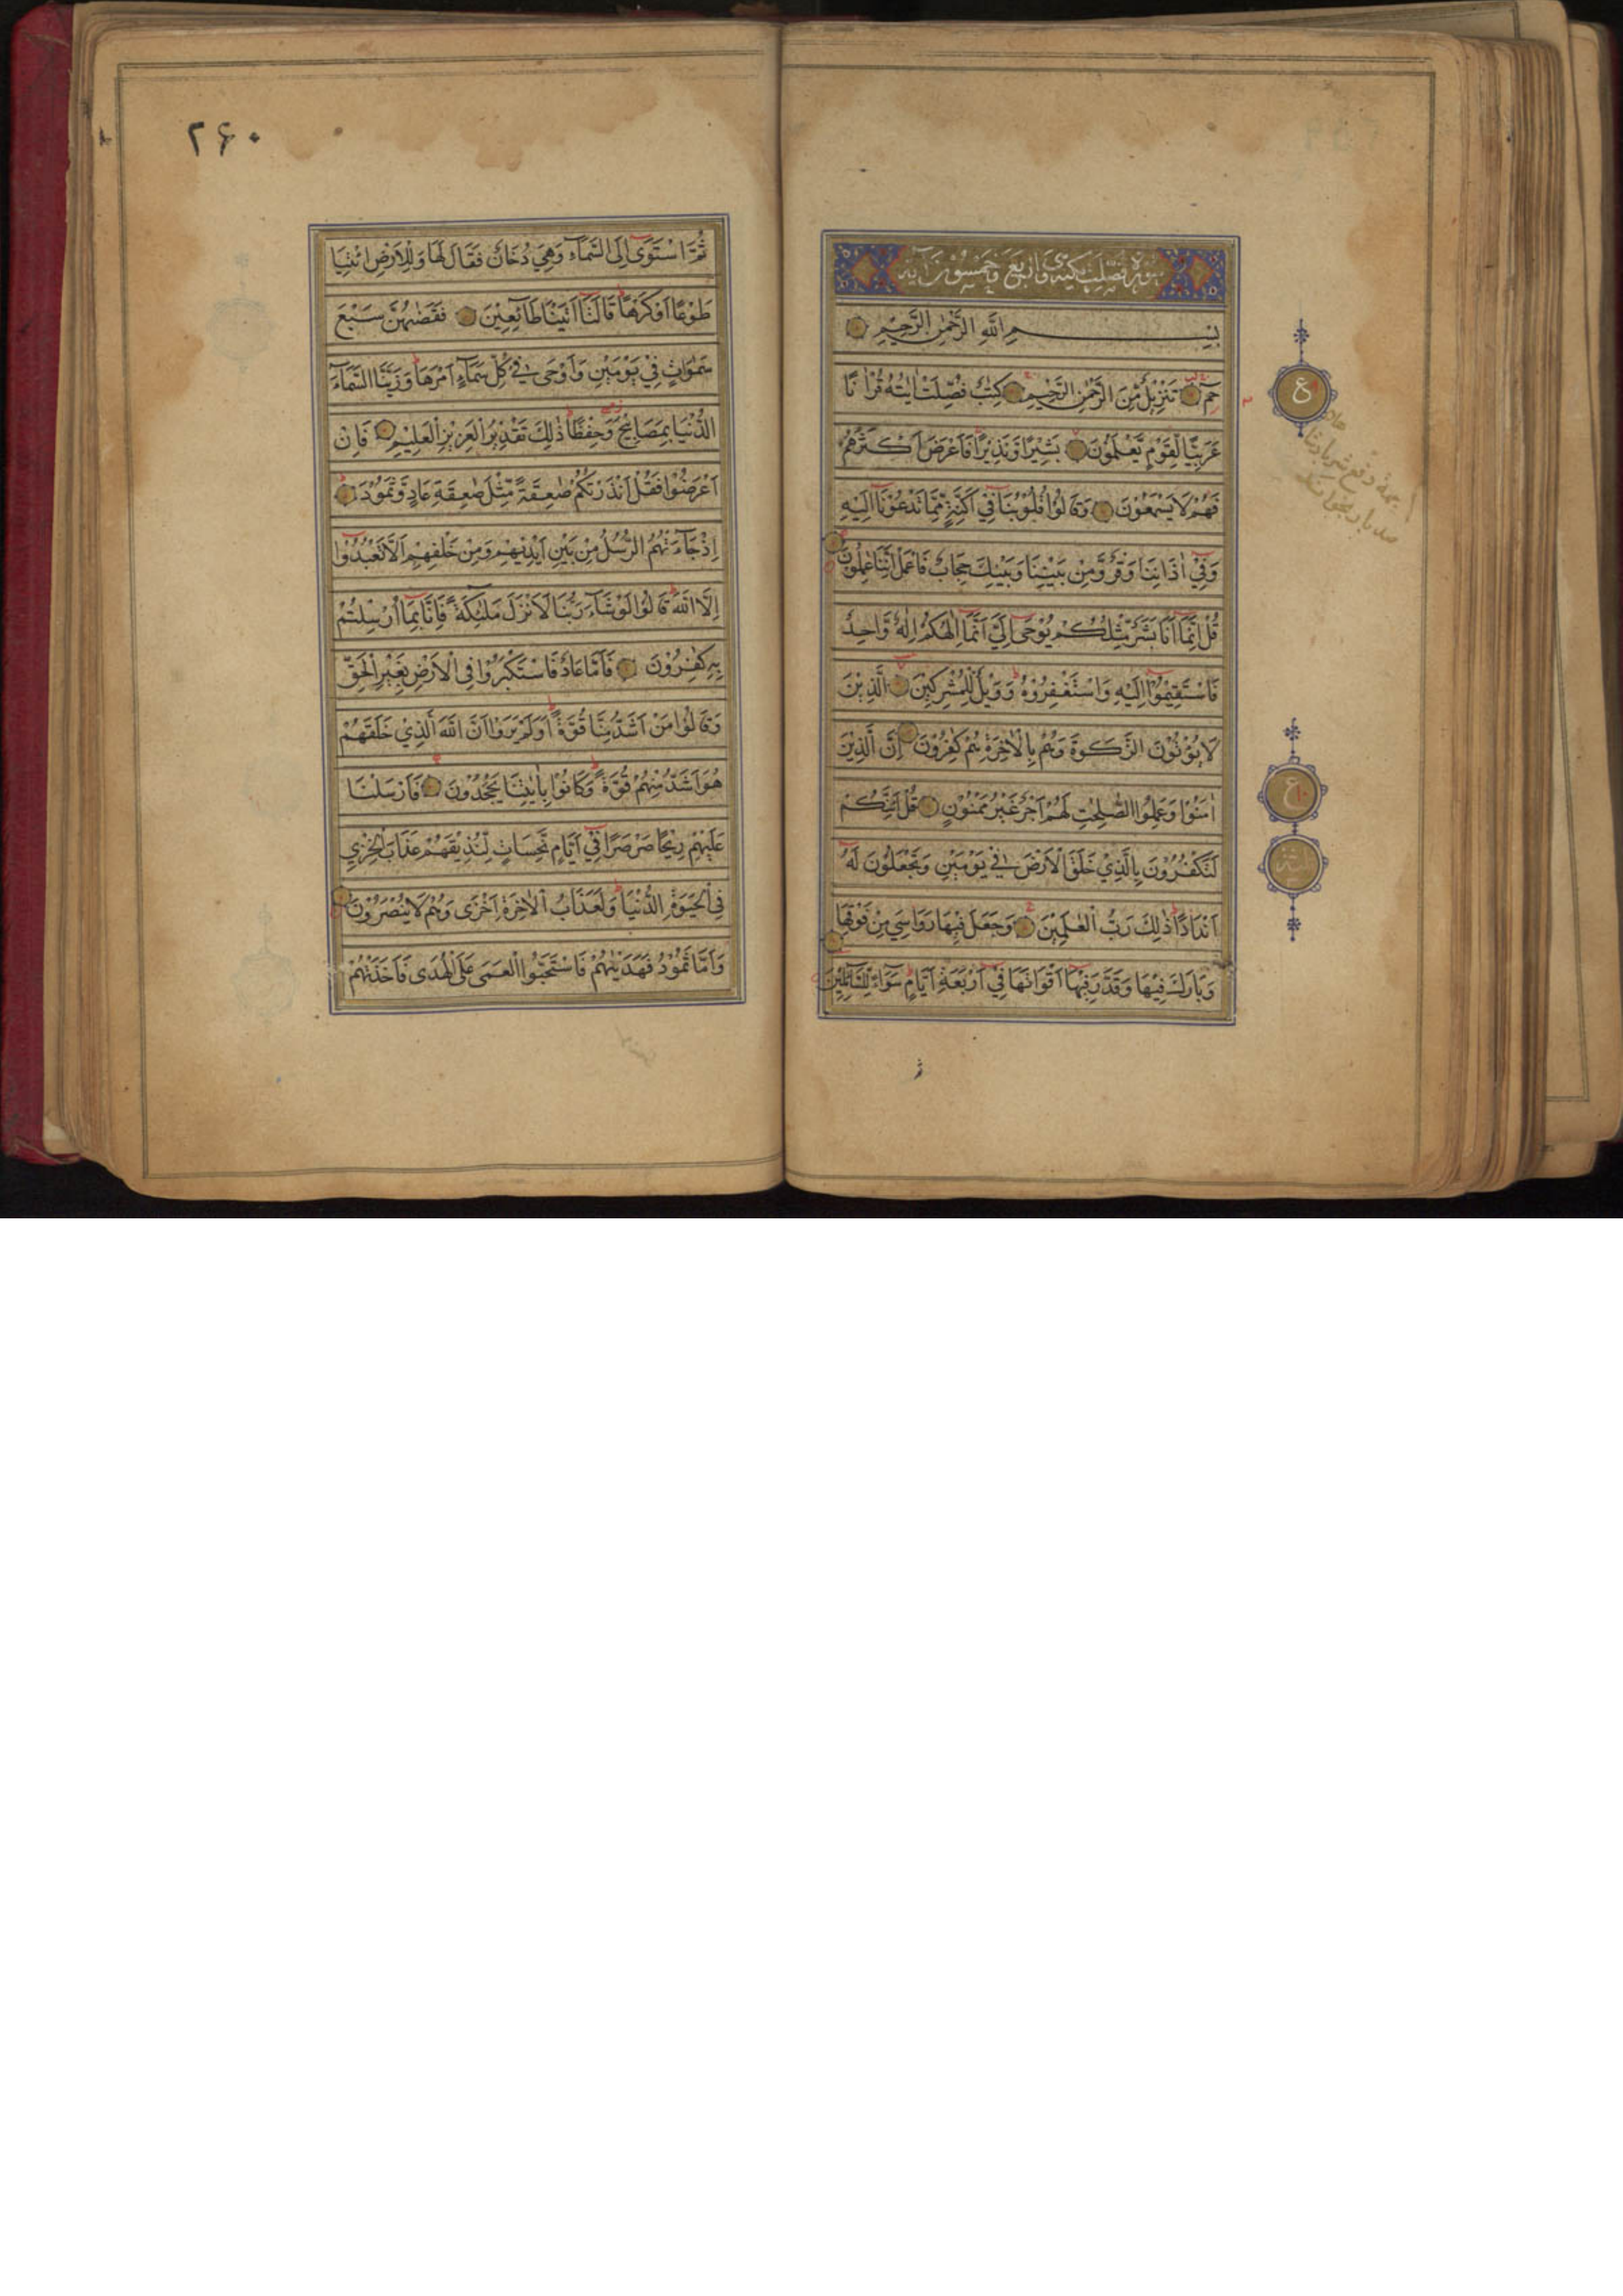 سورة فصلت مكية وهى اربع وخمسون آية
بِسْمِ اللّٰهِ الرَّحْمٰنِ الرَّحِيْمِ
حٰمٓ تَنْزِيْلٌ مِّنَ الرَّحْمٰنِ الرَّحِيْمِ كِتٰبٌ فُصِّلَتْ اٰيٰتُهُ قُرْاٰنًا
عَرَبِيًّا لِّقَوْمٍ يَّعْلَمُوْنَ بَشِيْرًا وَّنَذِيْرًا فَاَعْرَضَ اَكْثَرُهُمْ
فَهُمْ لَا يَسْمَعُوْنَ وَقَالُوْا قُلُوْبُنَا فِيْٓ اَكِنَّةٍ مِّمَّا تَدْعُوْنَآ اِلَيْهِ
وَفِيْٓ اٰذَانِنَا وَقْرٌ وَّمِنْ بَيْنِنَا وَبَيْنِكَ حِجَابٌ فَاعْمَلْ اِنَّنَا عٰمِلُوْنَ
قُلْ اِنَّمَآ اَنَا بَشَرٌ مِّثْلُكُمْ يُوْحٰى اِلَيَّ اَنَّمَآ اِلٰهُكُمْ اِلٰهٌ وَّاحِدٌ
فَاسْتَقِيْمُوْٓا اِلَيْهِ وَاسْتَغْفِرُوْهُ وَوَيْلٌ لِّلْمُشْرِكِيْنَ الَّذِيْنَ
لَا يُؤْتُوْنَ الزَّكٰوةَ وَهُمْ بِالْاٰخِرَةِ هُمْ كٰفِرُوْنَ اِنَّ الَّذِيْنَ
اٰمَنُوْا وَعَمِلُوا الصّٰلِحٰتِ لَهُمْ اَجْرٌ غَيْرُ مَمْنُوْنٍ قُلْ اَئِنَّكُمْ
لَتَكْفُرُوْنَ بِالَّذِيْ خَلَقَ الْاَرْضَ فِيْ يَوْمَيْنِ وَتَجْعَلُوْنَ لَهٗٓ
اَنْدَادًا ذٰلِكَ رَبُّ الْعٰلَمِيْنَ وَجَعَلَ فِيْهَا رَوَاسِيَ مِنْ فَوْقِهَا
وَبَارَكَ فِيْهَا وَقَدَّرَ فِيْهَآ اَقْوَاتَهَا فِيْٓ اَرْبَعَةِ اَيَّامٍ سَوَآءً لِّلسَّآئِلِيْنَ
ع
ع
۲۶۰
ثُمَّ اسْتَوٰٓى اِلَى السَّمَآءِ وَهِيَ دُخَانٌ فَقَالَ لَهَا وَلِلْاَرْضِ ائْتِيَا
طَوْعًا اَوْ كَرْهًا قَالَتَآ اَتَيْنَا طَآئِعِيْنَ فَقَضٰىهُنَّ سَبْعَ
سَمٰوَاتٍ فِيْ يَوْمَيْنِ وَاَوْحٰى فِيْ كُلِّ سَمَآءٍ اَمْرَهَا وَزَيَّنَّا السَّمَآءَ
الدُّنْيَا بِمَصَابِيْحَ وَحِفْظًا ذٰلِكَ تَقْدِيْرُ الْعَزِيْزِ الْعَلِيْمِ فَاِنْ
اَعْرَضُوْا فَقُلْ اَنْذَرْتُكُمْ صٰعِقَةً مِّثْلَ صٰعِقَةِ عَادٍ وَّثَمُوْدَ
اِذْ جَآءَتْهُمُ الرُّسُلُ مِنْ بَيْنِ اَيْدِيْهِمْ وَمِنْ خَلْفِهِمْ اَلَّا تَعْبُدُوْٓا
اِلَّا اللّٰهَ قَالُوْا لَوْ شَآءَ رَبُّنَا لَاَنْزَلَ مَلٰٓئِكَةً فَاِنَّا بِمَآ اُرْسِلْتُمْ
بِهٖ كٰفِرُوْنَ فَاَمَّا عَادٌ فَاسْتَكْبَرُوْا فِى الْاَرْضِ بِغَيْرِ الْحَقِّ
وَقَالُوْا مَنْ اَشَدُّ مِنَّا قُوَّةً اَوَلَمْ يَرَوْا اَنَّ اللّٰهَ الَّذِيْ خَلَقَهُمْ
هُوَ اَشَدُّ مِنْهُمْ قُوَّةً وَكَانُوْا بِاٰيٰتِنَا يَجْحَدُوْنَ فَاَرْسَلْنَا
عَلَيْهِمْ رِيْحًا صَرْصَرًا فِيْٓ اَيَّامٍ نَّحِسَاتٍ لِّنُذِيْقَهُمْ عَذَابَ الْخِزْيِ
فِى الْحَيٰوةِ الدُّنْيَا وَلَعَذَابُ الْاٰخِرَةِ اَخْزٰى وَهُمْ لَا يُنْصَرُوْنَ
وَاَمَّا ثَمُوْدُ فَهَدَيْنٰهُمْ فَاسْتَحَبُّوا الْعَمٰى عَلَى الْهُدٰى فَاَخَذَتْهُمْ